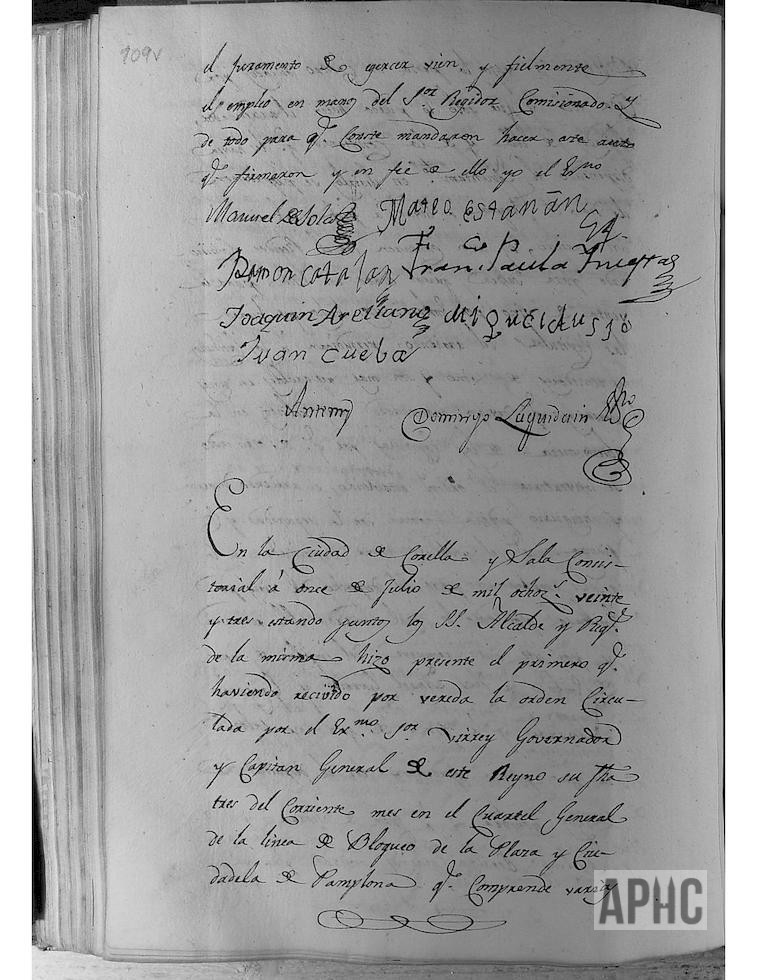 109v
el juramento de egercer vien, y fielmente
el empleo en manos del S.or Regidor Comisionado. Y
de todo para q.e Conste mandaron hacer este auto
q.e firmaron y en fee de ello yo el Ess.no
Manuel de Sola Mateo estañan
Ramon Catalan Fran.co Paula
Joaquin Arellano Miguel Ausejo
Juan Cueba
Antemi Domingo Laquidain Ess.no
En la Ciudad de Corella y Sala Consis-
torial á once de Julio de mil ochoz.s veinte
y tres estando juntos los SS. Alcalde y Reg.t
de la misma hizo presente el primero q.e
haviendo recivido por vereda la orden Circu-
lada por el Ex.mo Sor. Virrey Governador
y Capitan General de este Reyno su fha
tres del Corriente mes en el Cuartel General
de la linea de Bloqueo de la Plaza y Ciu-
dadela de Pamplona q.e Comprende varios
APHC